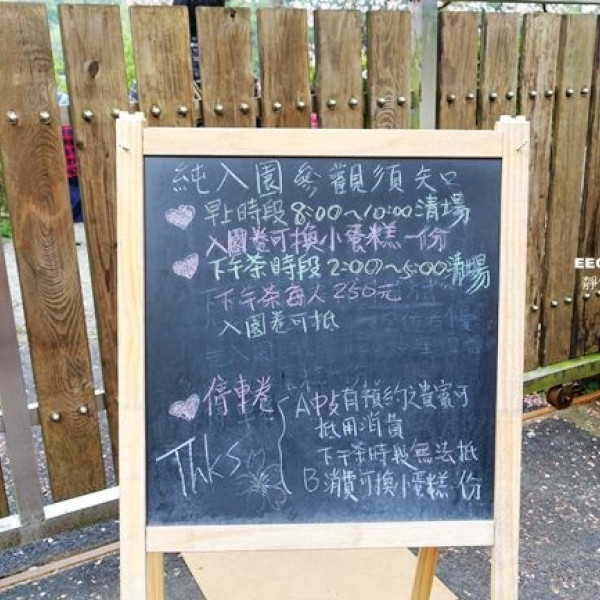 純入園參觀須知
早上時段8:00~10:00清場
入園卷可換小蛋糕一份
下午茶時段2:00~5:00清場
下午茶每人250元
入園卷可抵
停車卷
A中午有預約之貴賓可
抵用消費
下午茶時段無法抵
B消費可換小蛋糕一份
Thks
EEC
靜